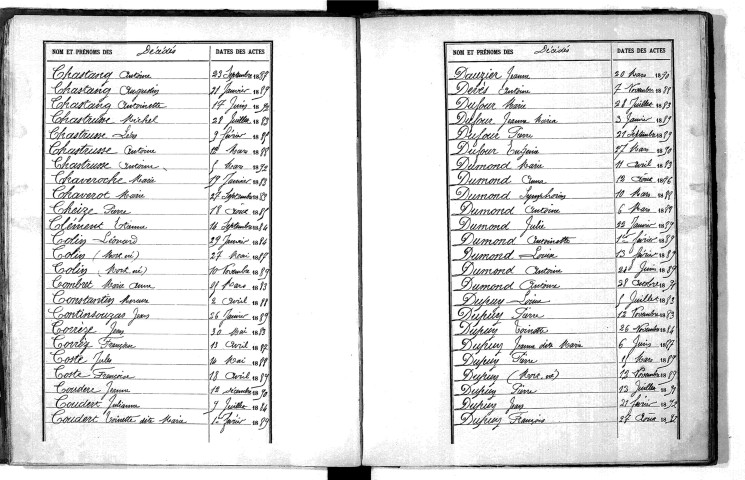 NOM ET PRÉNOMS DES Décédés DATES DES ACTES
Chastang Antoine 23 Septembre 1889
Chastang Augustin 21 Janvier 1889
Chastang Antoinette 17 Juin 1890
Chastrusse Michel 28 Juillet 1883
Chastrusse 9 février 188
Chastrusse Antoine 12 Mars 1888
Chastrusse Antoine 8 Mars 1890
Chaveroche Marie 19 Janvier 1883
Chaverot Marie 27 Septembre 1889
Chèze Pierre 18 Août 1885
Clément Etienne 14 Septembre 1884
Colin Léonard 29 Janvier 1884
Colin (Mort né) 27 Mai 1888
Colin (Mort né) 10 Novembre 1889
Combret Marie Anne Mars 1883
Constanty 2 Avril 1888
Continsouzas Jean 26 Janvier 1889
Corrèze Jean 30 Mai 1883
Correz Françoise 13 Avril 1887
Coste Jules 14 Mai 1888
Coste Françoise 18 Avril 1889
Couderc Jeanne 12 décembre 1890
Coudert Julianne 7 Juillet 1884
Coudert Toinette dite Maria 1er février 1889
NOM ET PRÉNOMS DES Décédés DATES DES ACTES
Dauzier Jeanne 20 Mars 1890
Debès Antoine 7 Novembre 1888
Dufour Marie 28 Juillet 1883
Dufour Jeanne Maria 3 Janvier 1889
Dufour Pierre 21 Septembre 1889
Dufour 27 Mars 1890
Dumond Marie 11 Avril 1883
Dumond Anna 12 Août 1886
Dumond Symphorien 10 Mars 1888
Dumond Antoine 6 Mars 1889
Dumond Julie 22 Janvier 1889
Dumond Antoinette 1er février 1889
Dumond Louise 13 février 1889
Dumond Antoine 24 Juin 1889
Dumond Antoine 28 Octobre 1890
Dupuy Louise 5 Juillet 1883
Dupuy Pierre 12 Novembre 1883
Dupuy Toinette 26 Novembre 1884
Dupuy Jeanne dite Marie 6 Juin 1887
Dupuy Pierre Mars 1889
Dupuy (Mort né) 13 Novembre 1889
Dupuy Pierre 13 Juillet
Dupuy Jean 21 février
Dupuy François 27 Août